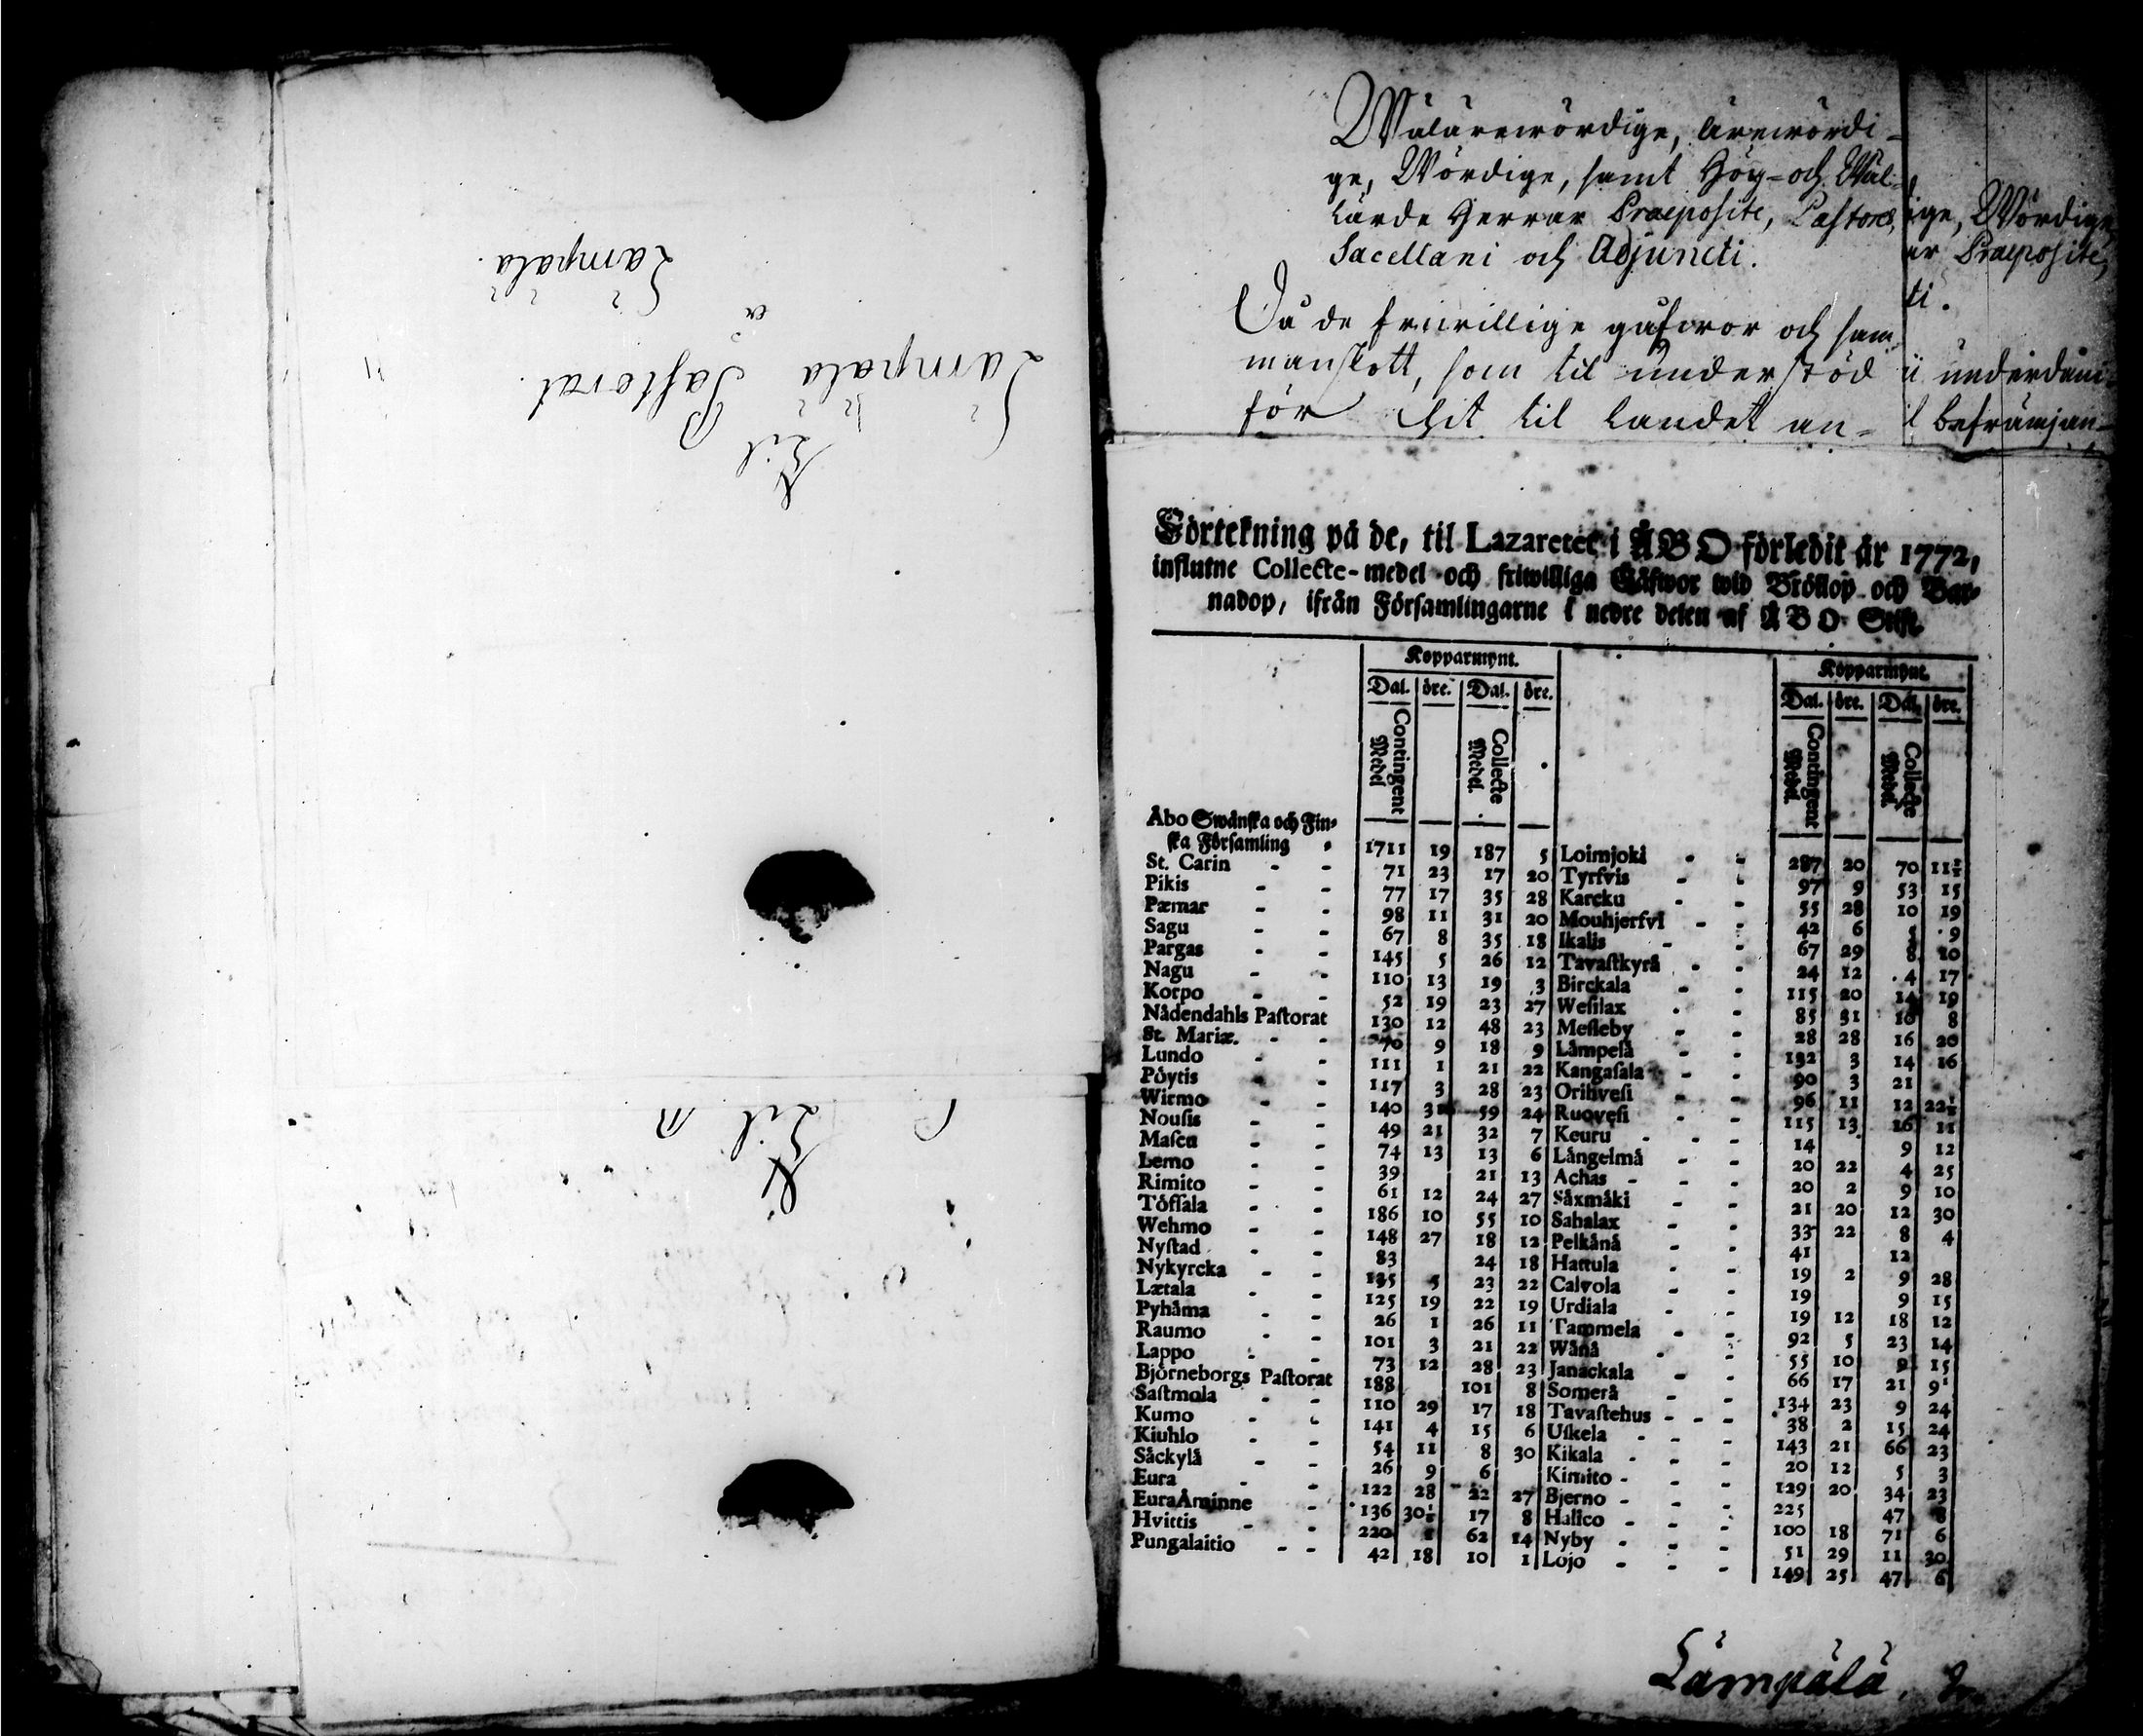 Til
Lämpälä Pastorat.
a
Lämpälä.
Til
Wälärewördige, ärewördi-
ge, Wördige, samt Hög- och Wäl-
lärde Herrar Praeposite, Pastores,
Sacellani och Adjuncti.
Då de friwillige gåfwor och sam-
manskott, som til understöd
för hit til landet an-
ige, Wördige
ar Praeposite,
ti.
i underdåni-
l befrämjan-
Förtekning på de, til Lazaretet i ÅBO förledit år 1772,
influtne Collecte-medel och friwilliga Gåfwor wid Bröllop och Bar-
nadop, ifrån Församlingarne i nedre delen af ÅBO Stift.
Kopparmynt. Kopparmynt.
Dal. öre. Dal. öre. Dal. öre. Dal. öre.
Contingent Medel Collecte Medel. Contingent Medel. Collecte Medel.
Åbo Swänska och Fin-
ska Församling - 1711 19 187 5 Loimjoki - - 287 20 70 11½
St. Carin - - 71 23 17 20 Tyrfvis - - 97 9 53 15
Pikis - - 77 17 35 28 Karcku - - 55 28 10 19
Pæmar - - 98 11 31 20 Mouhjerfvi - - 42 6 9
Sagu - - 67 8 35 18 Ikalis - - 67 29 8 10
Pargas - - 145 5 26 12 Tavastkyrå - - 24 12 4 17
Nagu - - 110 13 19 3 Birckala - - 115 20 14 19
Korpo - - 52 19 23 27 Wesilax - - 85 31 10 8
Nådendahls Pastorat 130 12 48 23 Messeby - - 28 28 16 20
St. Mariæ. - - 70 9 18 9 Låmpelå - - 132 3 14 16
Lundo - - 111 1 21 22 Kangasala - - 90 3 21
Pöytis - - 117 3 28 23 Orihvesi - - 96 11 12 22½
Wirmo - - 140 31 59 24 Ruovesi - - 115 13 16 11
Nousis - - 49 21 32 7 Keuru - - - 14 9 12
Mascu - - 74 13 13 6 Långelmå - - 20 22 4 25
Lemo - - 39 21 13 Achas - - - 20 2 9 10
Rimito - - 61 12 24 27 Såxmåki - - 21 20 12 30
Töfsala - - 186 10 55 10 Sahalax - - 33 22 8 4
Wehmo - - 148 27 18 12 Pelkånå - - 41 12
Nystad - - 83 24 18 Hattula - - 19 2 9 28
Nykyrcka - - 185 5 23 22 Calvola - - 19 9 15
Lætala - - 125 19 22 19 Urdiala - - 19 12 18 12
Pyhåma - - 26 1 26 11 Tammela - - 92 5 23 14
Raumo - - 101 3 21 22 Wånå - - 55 10 9 15
Lappo - - 73 12 28 23 Janackala - - 66 17 21 9
Björneborgs Pastorat 188 101 8 Somerå - - 134 23 9 24
Sastmola - - 110 29 17 18 Tavastehus - - - 38 2 15 24
Kumo - - 141 4 15 6 Uskela - - - 143 21 66 23
Kiuhlo - - 54 11 8 30 Kikala - - - 20 12 5 3
Såckylå - - 26 9 6 Kimito - - - 129 20 34 23
Eura - - 122 28 22 27 Bjerno - - - 225 47 8
EuraÅminne - 136 30½ 17 8 Halico - - - 100 18 71 6
Hvittis - - 220 62 14 Nyby - - - 51 29 11 30
Pungalaitio - - 42 18 10 1 Lojo - - - 149 25 47 6
Lämpälä.